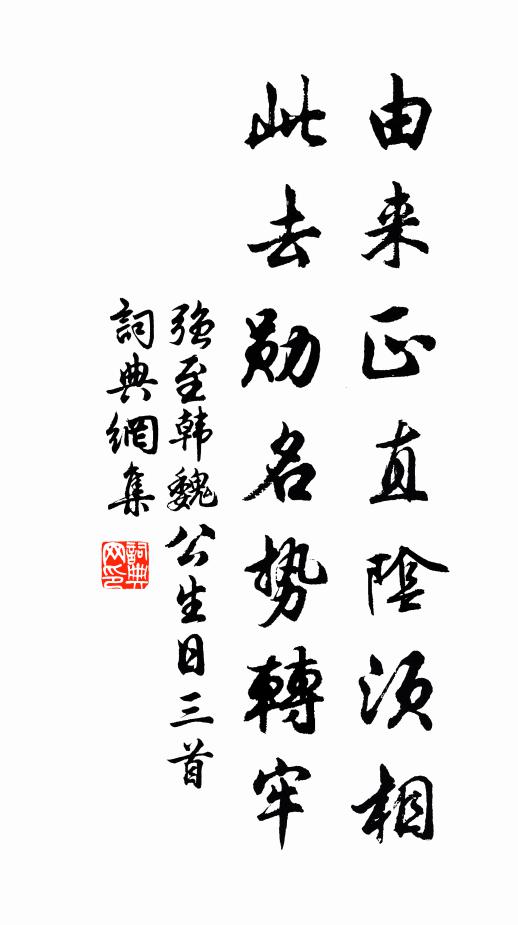 由来正直陰須相
此去勛名势轉牢
强至韩魏公生日三首
詞典網集
詞典網印